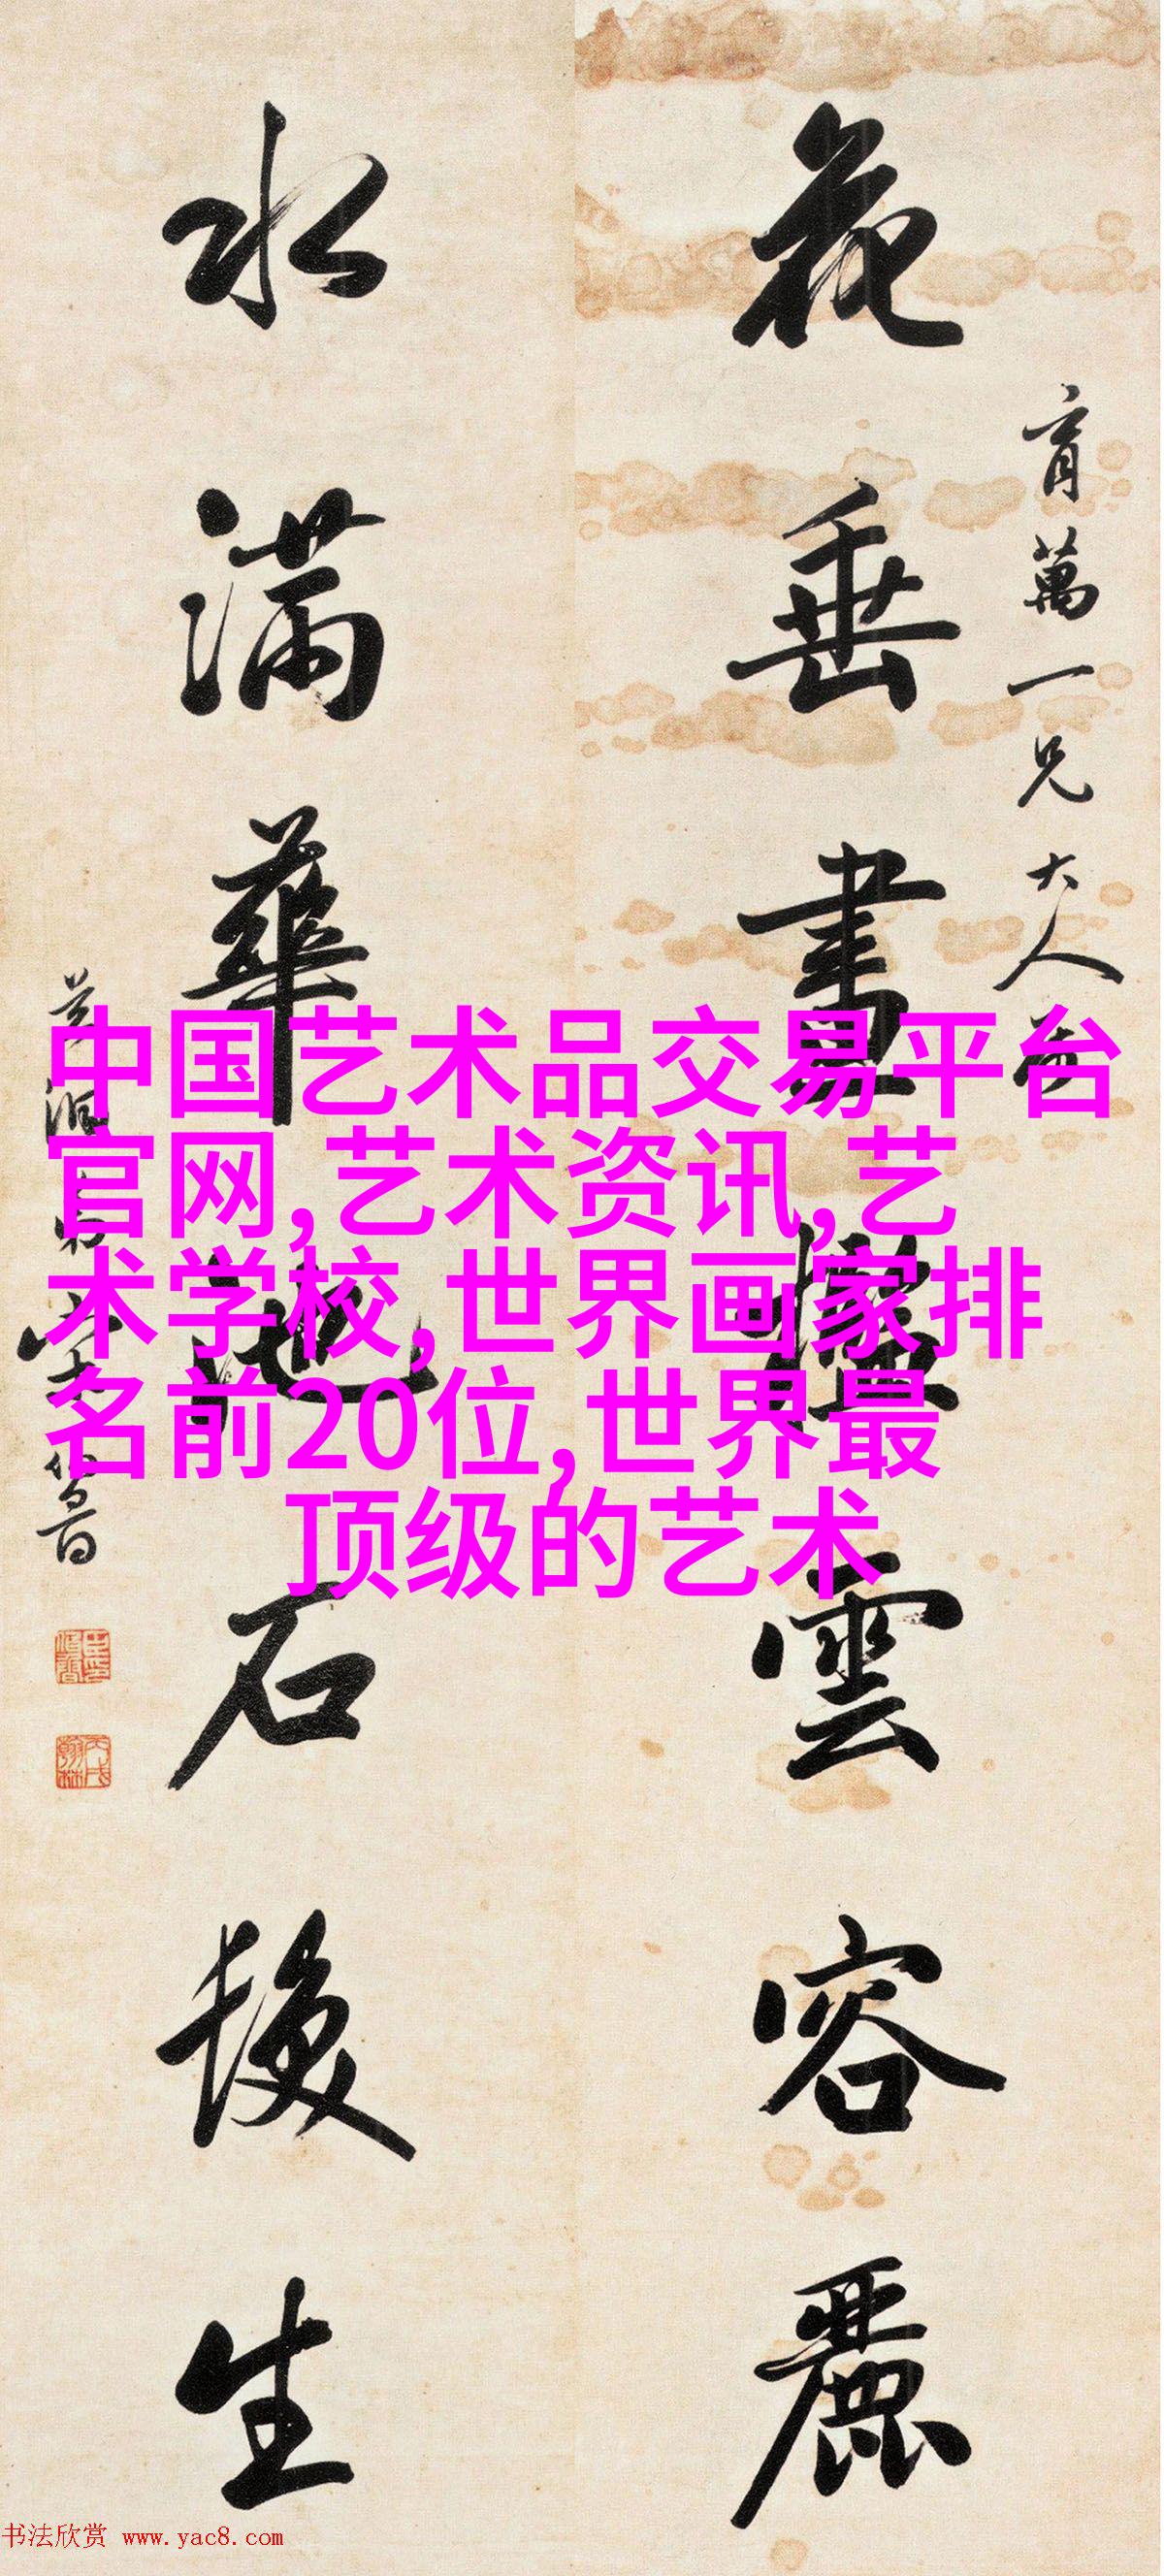 花垂畫檻雲容麗
育萬一兄大人
水滿華池石後生
中国艺术品交易平台
官网,艺术资讯,艺
术学校,世界画家排
名前20位,世界最
顶级的艺术
书法欣赏 www.yac8.com